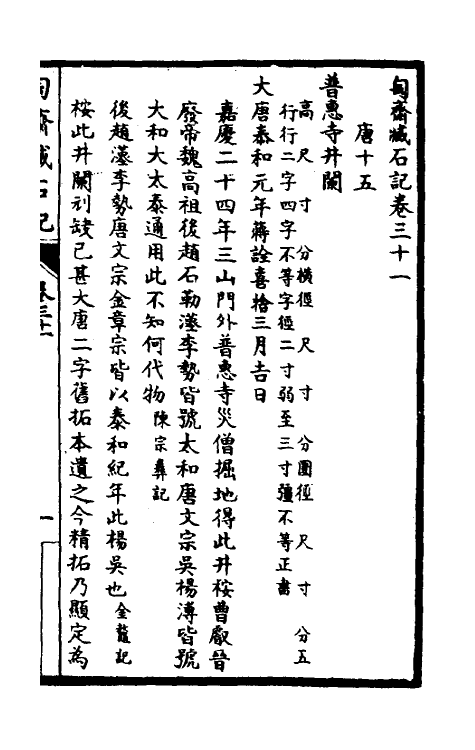 匋齋臧石記卷三十一
唐十五
普惠寺井闌
高 尺 寸 分橫徑 尺 寸 分圍徑 尺 寸 分五
行行二字四字不等字徑二寸弱至三寸彊不等正書
大唐泰和元年蔣詮喜捨三月吉日
嘉慶二十四年三山門外普惠寺災僧掘地得此井桉曹叡晉
廢帝魏高祖後趙石勒漢李勢皆號太和唐文宗吳楊溥皆號
大和大太泰通用此不知何代物陳宗彝記
後趙漢李勢唐文宗金章宗皆以泰和紀年此楊吳也金鼇記
桉此井闌刓缺已甚大唐二字舊拓本遺之今精拓乃顯定為
匋齋臧石記
卷三十一
一